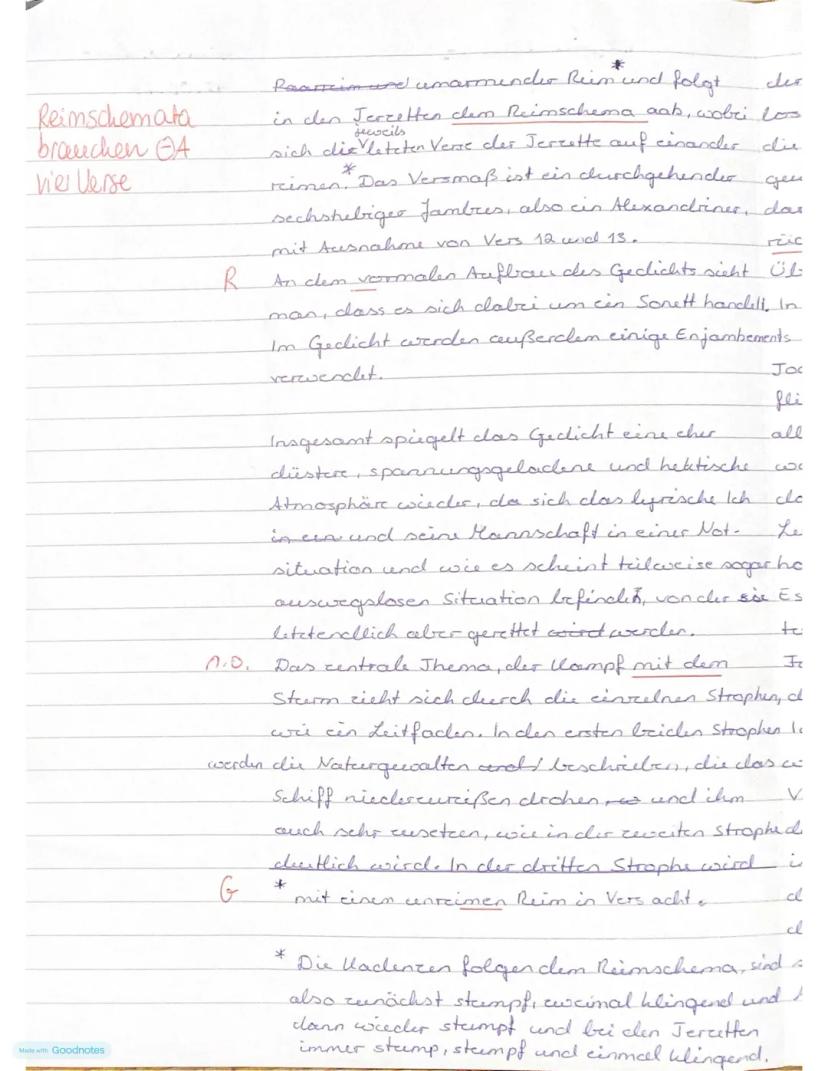 Paarreim und umarmender Reim * und folgt der
Reimschemata in den Terzetten dem Reimschema aab, wobei los
brauchen ⊖A jeweils
sich die letzten Verse der Terzette auf einander die
vier Verse * reimen. Das Versmaß ist ein durchgehender geu
sechshebiger Jambus, also ein Alexandriner, das
mit Ausnahme von Vers 12 und 13. rüc
R An dem vormalen Aufbau des Gedichts sieht Üb
man, dass es sich dabei um ein Sonett handelt. In
Im Gedicht werden außerdem einige Enjambements
verwendet. Joc
fli
Insgesamt spiegelt das Gedicht eine eher all
düstere, spannungsgeladene und hektische we
Atmosphäre wieder, da sich das lyrische Ich da
in ein und seine Mannschaft in einer Not- Le
situation und wie es scheint teilweise sogar ho
auswegslosen Situation befindet, von der sie Es
letztendlich aber gerettet wird werden. te
n.D. Das zentrale Thema, der Kampf mit dem
Sturm zieht sich durch die einzelnen Strophen, d
wie ein Leitfaden. In den ersten beiden Strophen
werden die Naturgewalten und beschrieben, die das
Schiff niederzureißen drohen, und ihm V
auch sehr zusetzen, wie in der zweiten Strophe d
deutlich wird. In der dritten Strophe wird i
G * mit einen unreimen Reim in Vers acht. d
d
* Die Kadenzen folgen dem Reimschema, sind
also zunächst stumpf, zweimal klingend und
dann wieder stumpf und bei den Terzetten
immer stump, stumpf und einmal klingend.
Made with Goodnotes